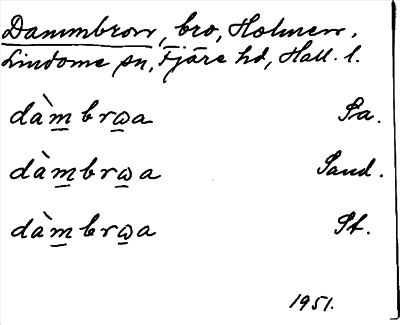 Dammbron, bro, Holmen.
Lindome sn, Fjäre hd, Hall. l.
dàm̲brω̲a Pa.
dàm̲brω̲a Sand.
dàm̲brω̲a St.
1951.